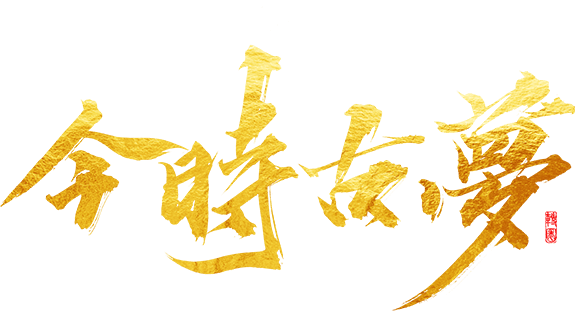 今時古夢